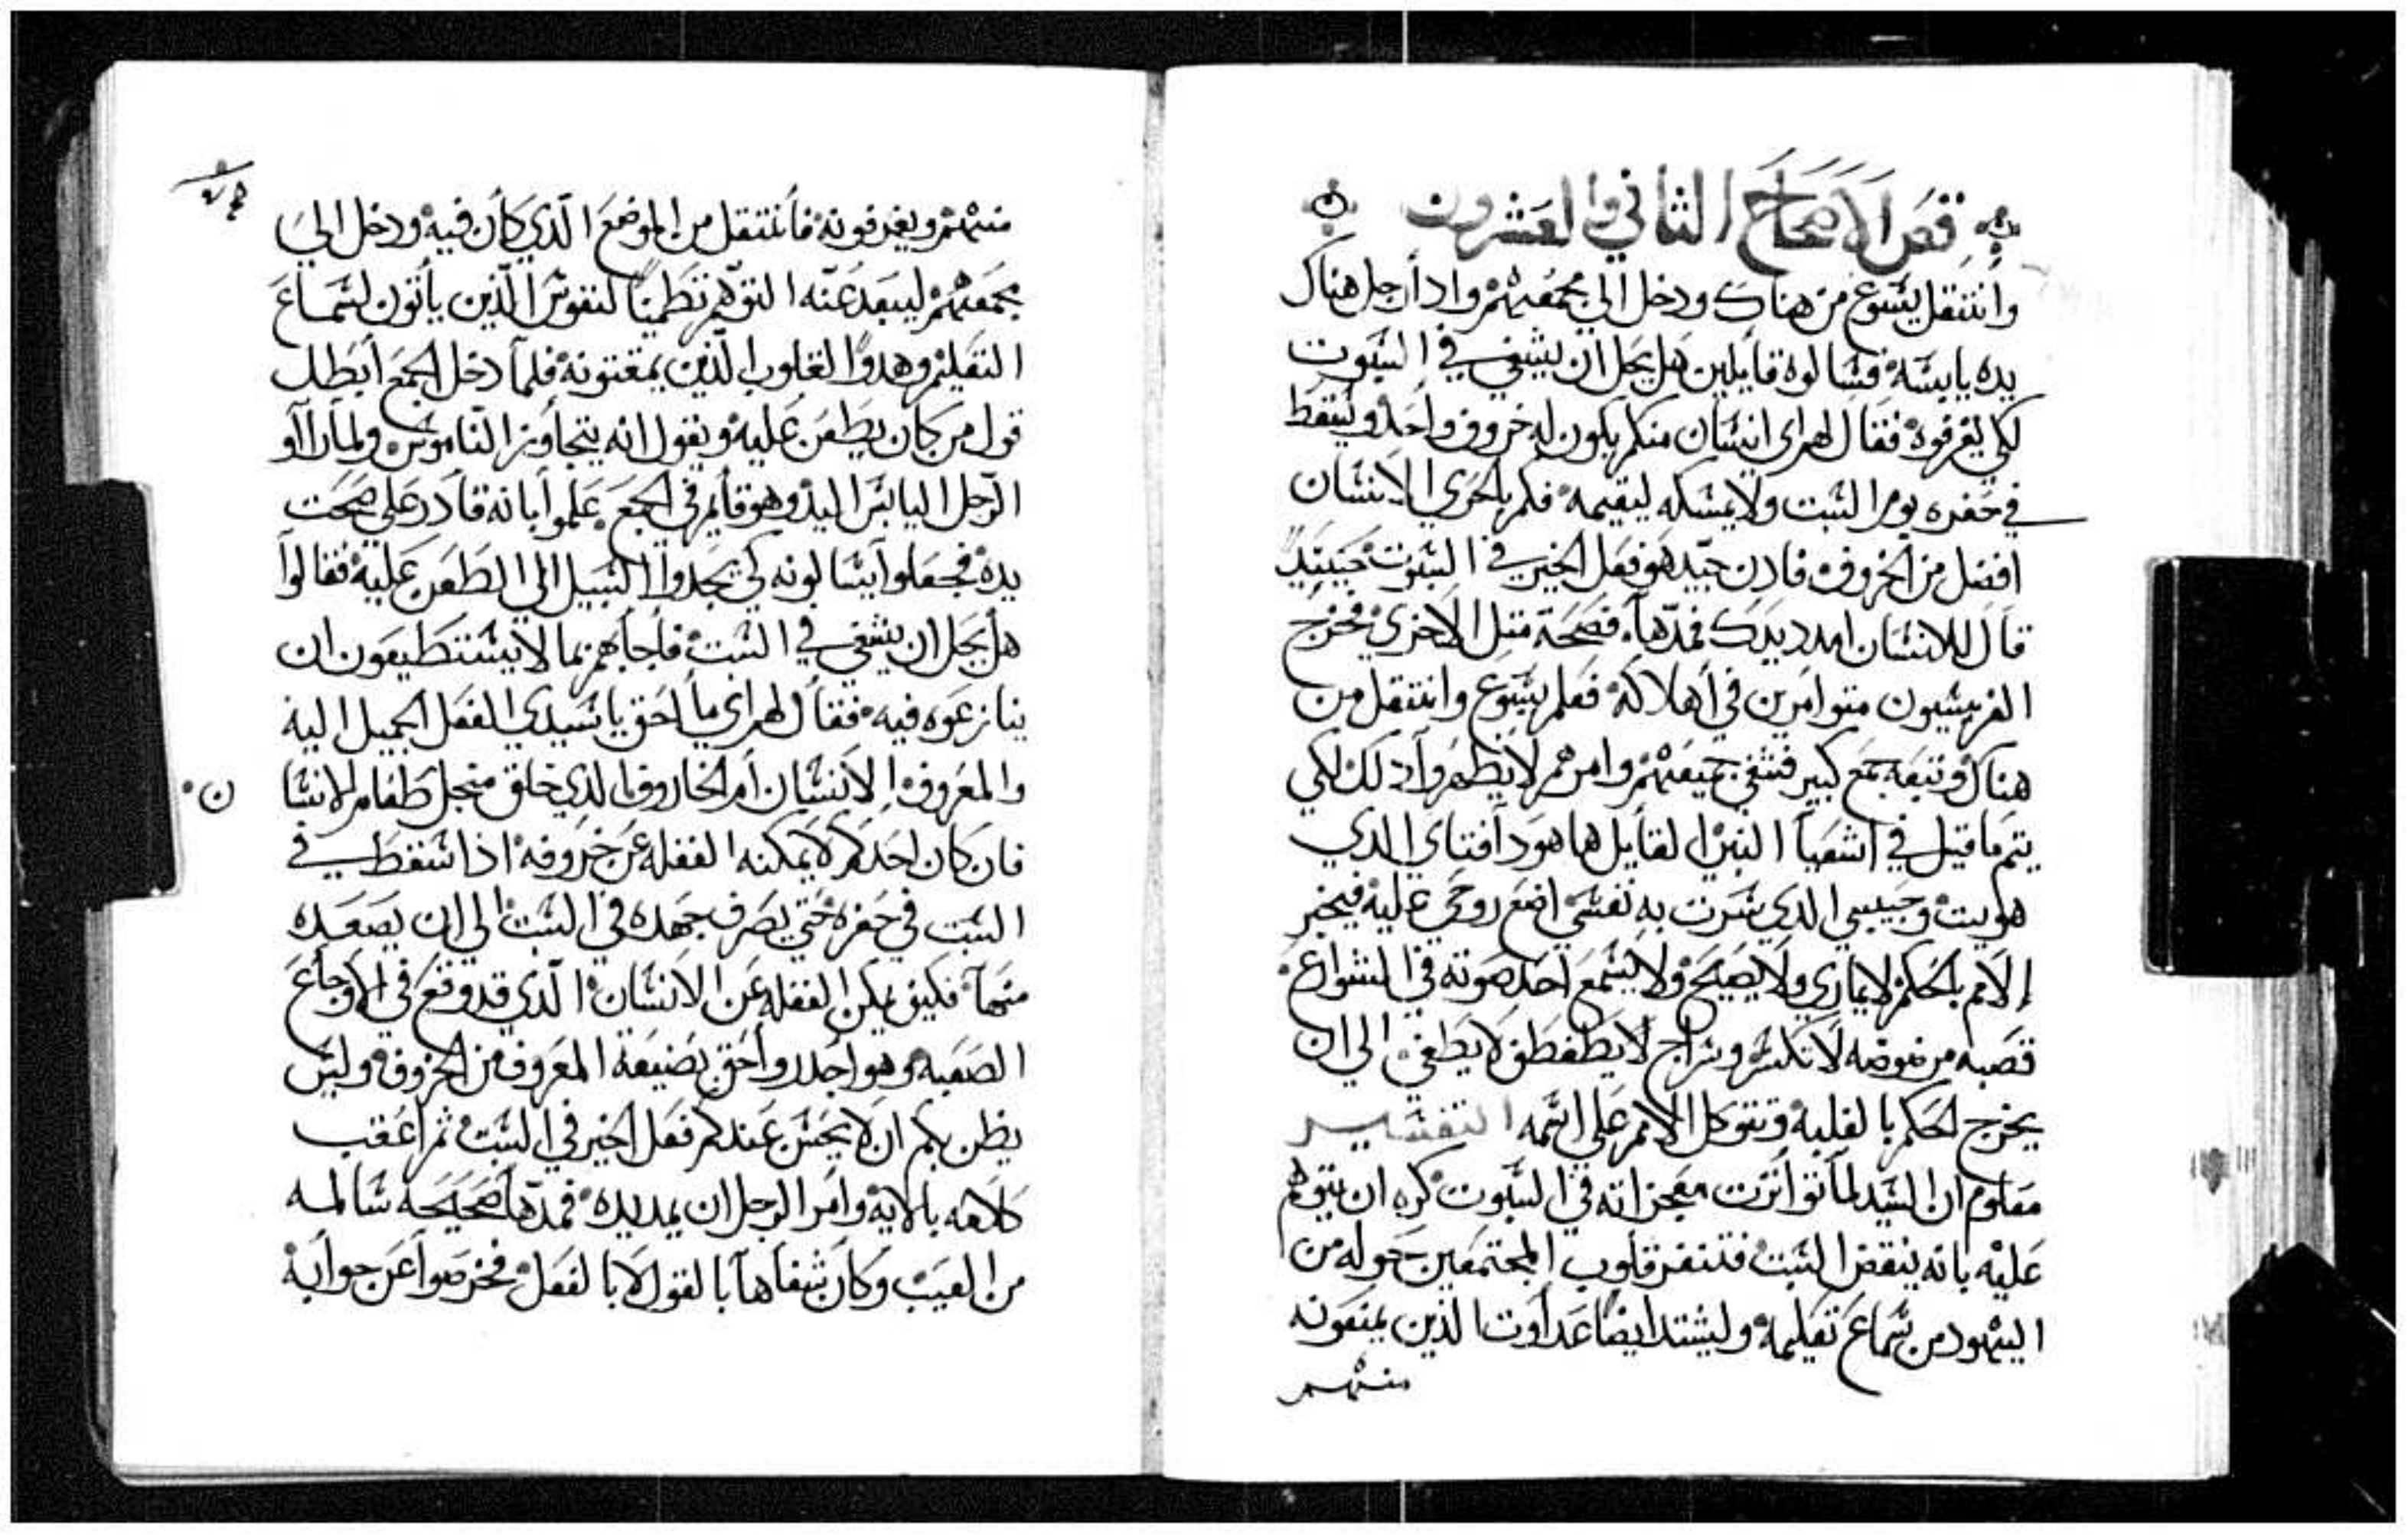 فص الاصحاح الثاني والعشرون
وانتقل يسوع من هناك ودخل الي مجمعهم واذا رجل هناك
يده يابسه فسالوه قايلين هل يحل ان يشفي في السبوت
لكي يقرفوه فقال لهم اي انسان منكم يكون له خروف واحد ويسقط
في حفره يوم السبت ولا يمسكه ليقيمه فكم بالحري الانسان
افضل من الخروف فاذن جيد هو فعل الخير في السبوت حينيد
قال للانسان امدد يدك فمدها فصحة متل الاخري فخرج
الفريسيون متوامرين في اهلاكه فعلم يسوع وانتقل من
هناك وتبعه جمع كبير فشفي جميعهم وامرهم لا يظهروا دلك لكي
يتم ما قيل في اشعيا النبي القايل ها هودا فتاي الدي
هويت وحبيبي الدي سرت به نفسي اضع روحي عليه فيخبر
الامم بالحكم لا يماري ولا يصيح ولا يسمع احد صوته في الشوارع
قصبه مرضوضه لا تكسر وسراج لا يطفطق لا يطفي الي ان
يخرج الحكم بالغلبه وتتوكل الامم علي اسمه التفسير
معلوم ان السيد لما تواترت معجزاته في السبوت كره ان يتوهم
عليه بانه ينقض السبت فتنفر قلوب المجتمعين حوله من
اليهود من سماع تعليمه وليشتد ايضا عداوت الذين يمنعونه
منهم
منهم ويغرفونه فانتقل من الموضع الذي كان فيه ودخل الي
مجمعهم ليبعد عنه التوهم تطمينا لنفوس الذين ياتون لسماع
التعليم وهدوا لقلوب الذين يمقتونه فلما دخل الجمع ابطل
قول من كان يطعن عليه ويقول انه يتجاوز الناموس ولما راآو
الرجل اليابس اليد وهو قايم في الجمع علموا بانه قادر علي صحت
يده فجعلوا يسالونه كي يجدوا السبيل الي الطعن عليه فقالوا
هل يحل ان يشفي في السبت فاجابهم بما لا يستطيعون ان
ينازعوه فيه فقال لهم اي ما احق يا سيدي الفعل الجميل اليه
والمعروف الانسان ام الخاروف الدي خلق منجل طعام الانسا
ن
فان كان احدكم لا يمكنه الغفله عن خروفه اذا سقط في
السبت في حفره حتي يصرف جهده في السبت الي ان يصعده
منها فكيف يمكن الغفله عن الانسان الدي قد وقع في الاوجاع
الصعبه وهو اجدر واحق بصنيعة المعروف من الخروف وليس
يظن بكم ان لا يحسن عندكم فعل الخير في السبت ثم اعقب
كلامه بالايه وامر الرجل ان يمد يده فمدها صحيحه سالمه
من العيب وكان شفاها بالقول لا بالفعل فخرصوا عن جوابه